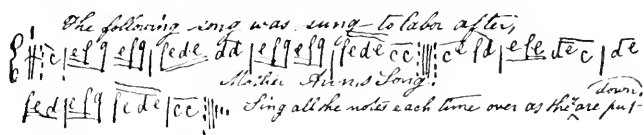 The following song was sung to labor after,
𝄆 c | efg efg | fede dd | efg efg | fede cc :||: ce fd | efe dec | de
Mother Anns Song.
fed | efg fede | cc :||: Sing all the notes each time over as they are put down.